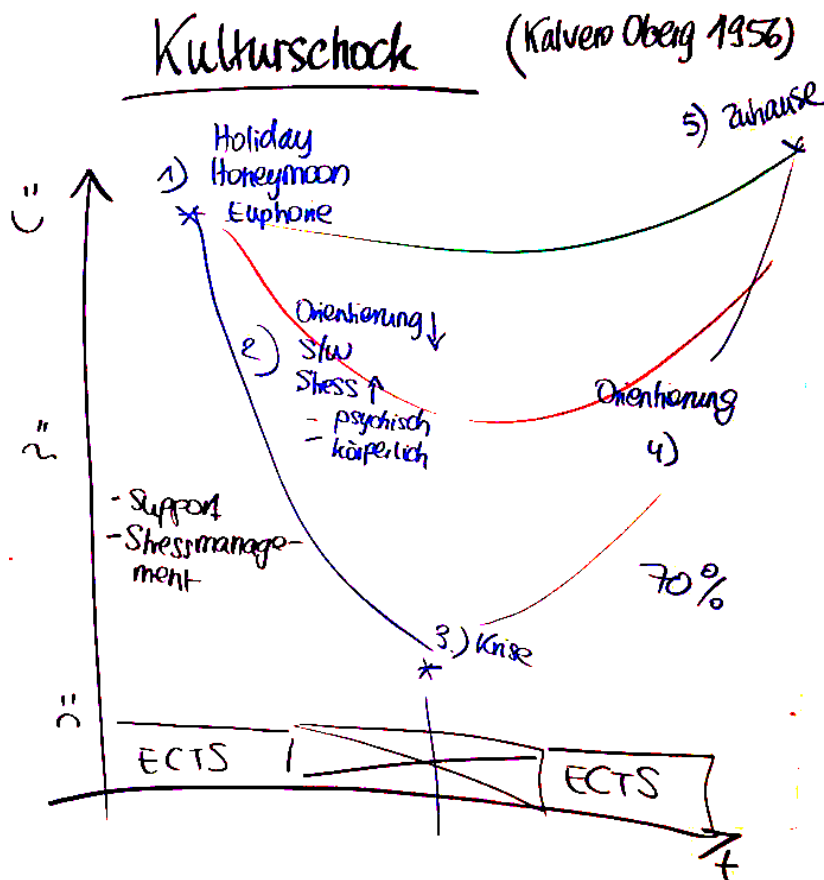 Kulturschock (Kalvero Oberg 1956)
5) Zuhause
Holiday
1) Honeymoon
Euphorie
Orientierung ↓
2) S/W
Stress ↑
- psychisch
- körperlich
Orientierung
4)
- Support
- Stressmanage-
ment
70%
3.) Krise
ECTS
ECTS
t